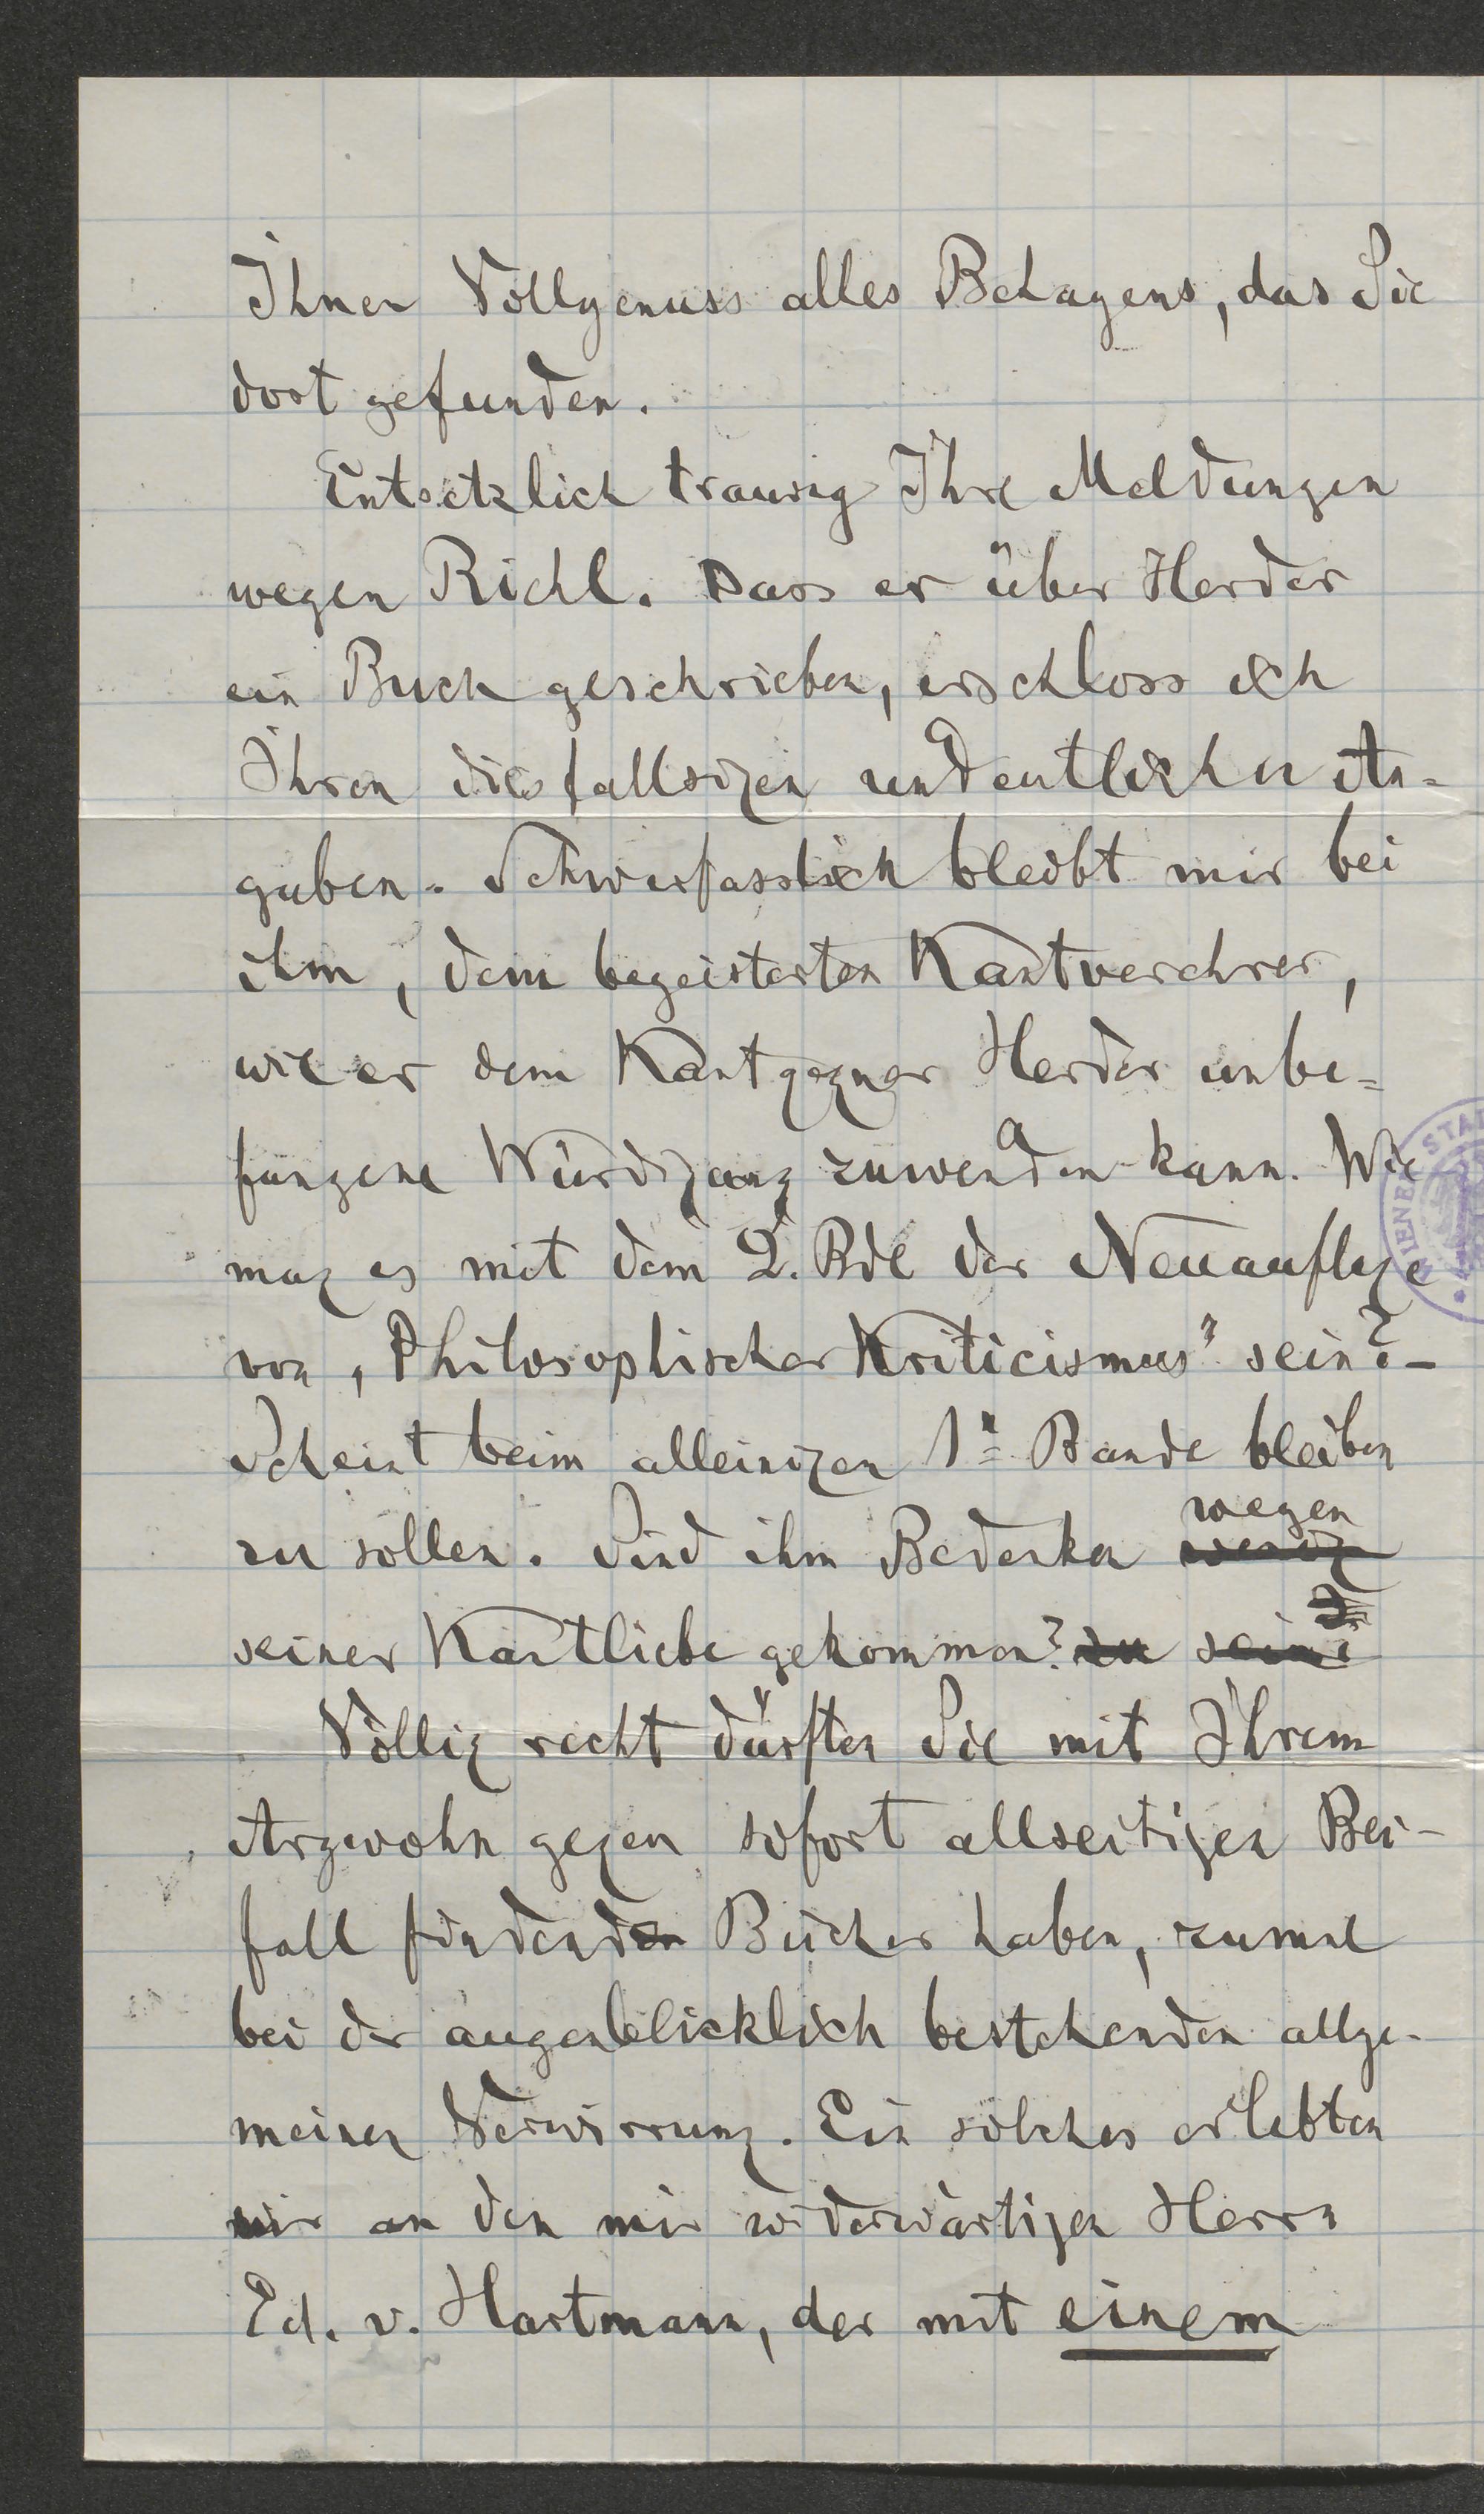 Ihnen Vollgenuss alles Behagens, das Sie
dort gefunden.
Entsetzlich traurig Ihre Meldungen
wegen Riehl. Dass er über Herder
ein Buch geschrieben, erschloss ich
Ihren diesfallsigen undeutlichen An-
gaben. Schwerfasslich bleibt mir bei
ihm, dem begeisterten Kantverehrer,
wie er dem Kantgegner Herder unbe-
fangene Würdigung zuwenden kann. Wie
mag es mit dem 2. Bde der Neuauflage
von „Philosophischer Kriticismus" sein? –
Scheint beim alleinigen 1n Bande bleiben
zu sollen. Sind ihm Bedenken wenig wegen
seiner Kantliebe gekommen? zu sein?
Völlig recht dürften Sie mit Ihrem
Argwohn gegen sofort allseitigen Bei-
fall findenden Bücher haben, zumal
bei der augenblicklich bestehenden allge-
meinen Verwirrung. Ein solches erlebten
wir an den mir widerwärtigen Herrn
Ed. v. Hartmann, der mit einem
WIENER STA